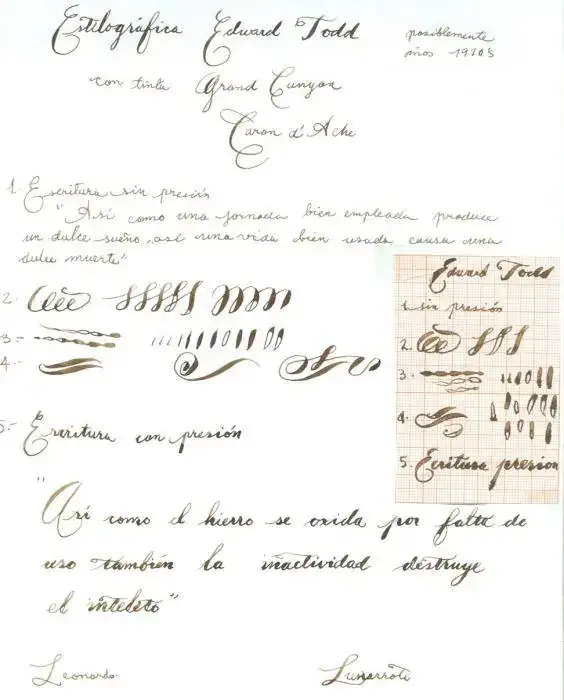 Estilográfica Edward Todd
posiblemente
años 1910s
con tinta Grand Canyon
Caran d'Ache
1. Escritura sin presión
"Así como una jornada bien empleada produce
un dulce sueño, así una vida bien usada causa una
dulce muerte"
2.
3.-
4.-
5.- Escritura con presión
"Así como el hierro se oxida por falta de
uso también la inactividad destruye
el inteleto"
Leonardo
Edward Todd
1. sin presión
2.
3.-
4.
5. Ecritura presion